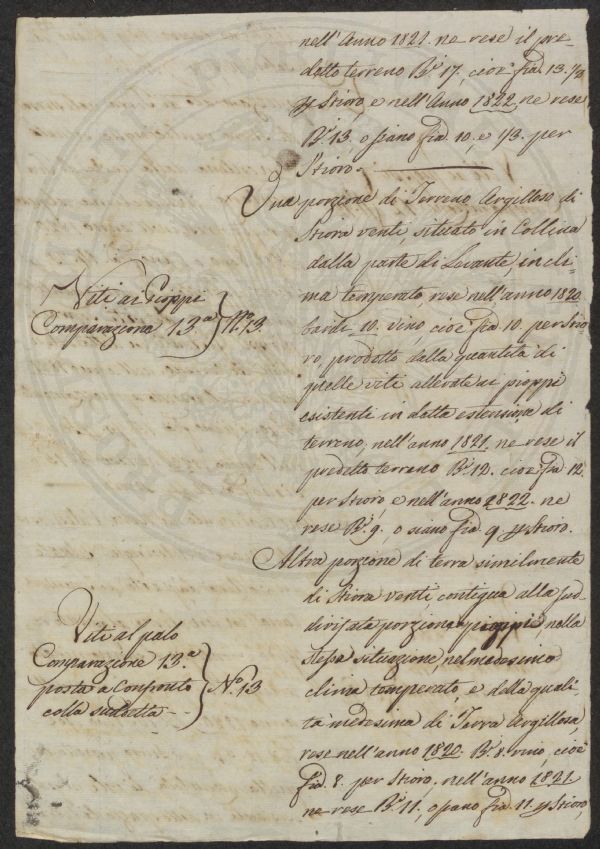 nell'Anno 1821. ne rese il pre-
detto terreno B.i 17. cioè fia. 13. 1/2
p Stioro, e nell'Anno 1822. ne rese
B.i 13, o siano fia. 10, e 1/3. per
Stioro.
Una porzione di Terreno Argilloso di
Stiora venti, situato in Collina
dalla parte di Levante, in cli-
ma temperato rese nell'anno 1820.
barili 10. vino, cioè fia 10. per Stio-
ro, prodotto dalla quantità di
quelle viti allevate ai pioppi
esistenti in detta estensione di
terreno, nell'anno 1821. ne rese il
predetto terreno B.i 12. cioè fia 12.
per Stioro, e nell'anno 1822. ne
rese B.i 9, o siano fia. 9 p Stioro.
Viti ai Pioppi
Comparazione 13.a } N.o 13
Altra porzione di terra similmente
di Stiora venti contigua alla sud-
divisata porzione pioppi, nella
stessa situazione, nel medesimo
clima temperato, e della quali-
tà medesima di Terra Argillosa,
rese nell'anno 1820. B.i 8. vino, cioè
fia 8. per Stioro, nell'anno 1821
ne rese B.i 11. o siano fia. 11 p Stioro,
Viti al palo
Comparazione 13.a
posta a Confronto } N.o 13
colla suddetta -